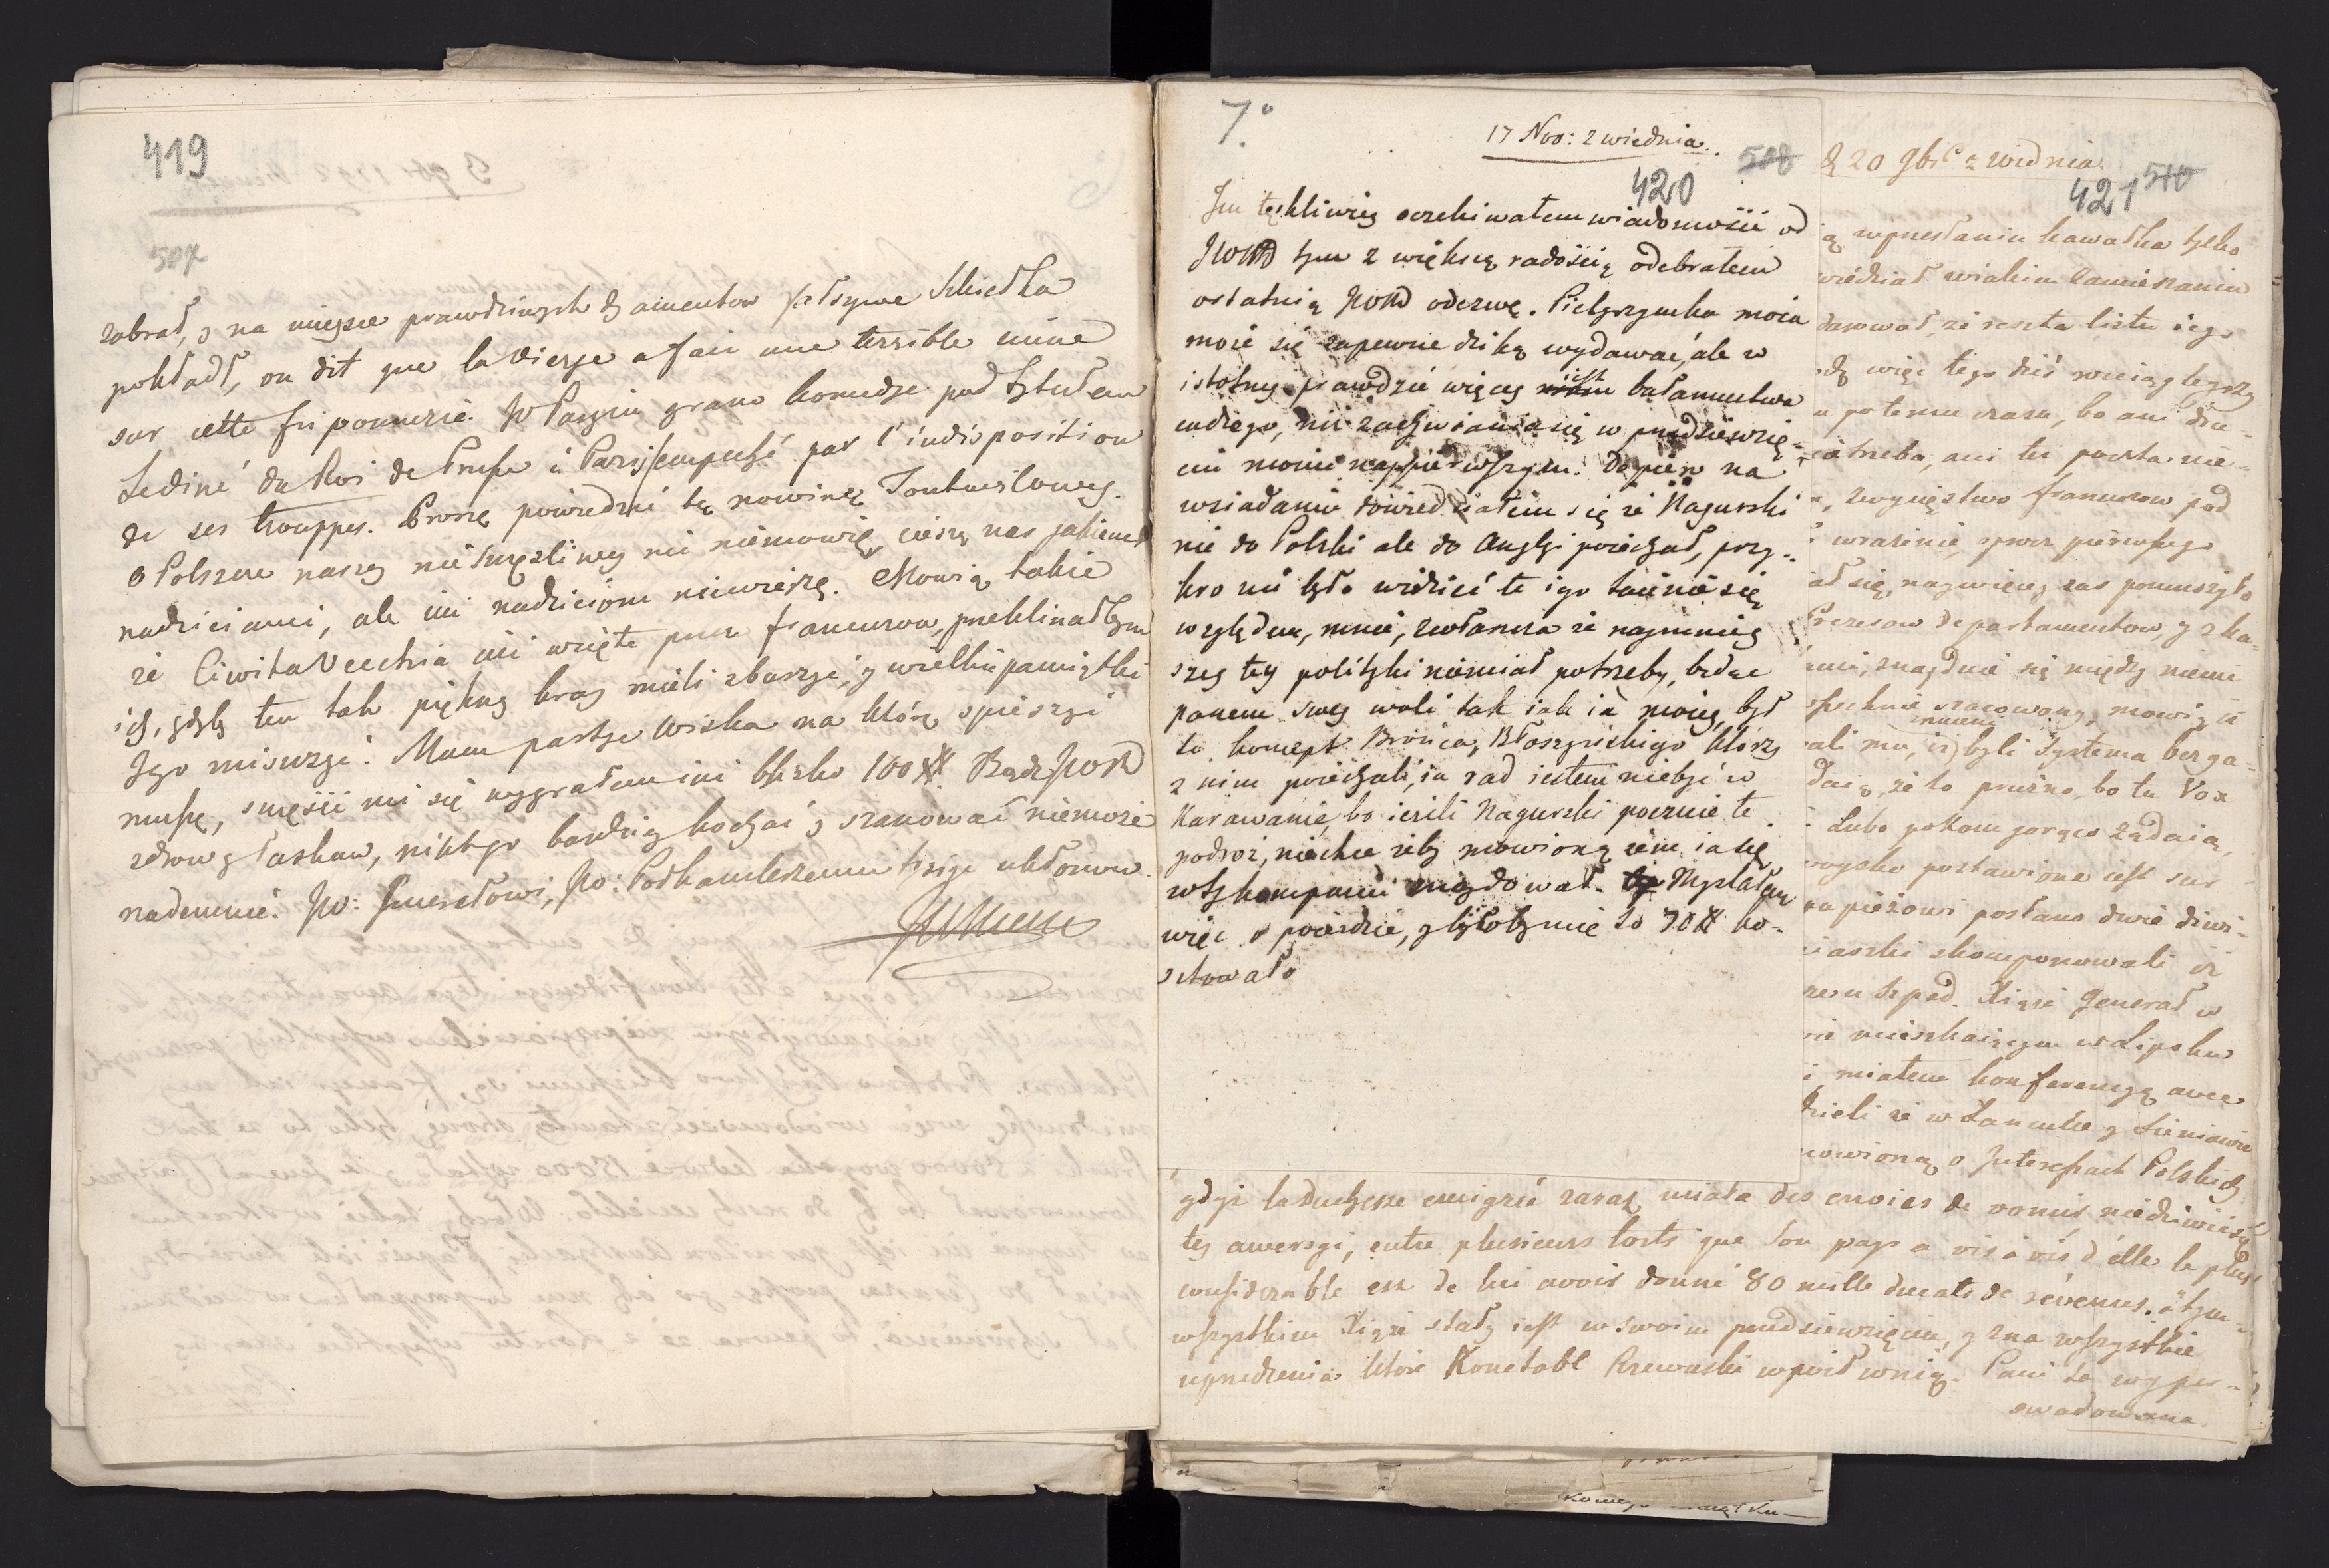 419
507
zabrał, y na mieysce prawdziwych dyamentow fałszywe Szkiełka
pokładł, on dit que la Vierge a fait une terrible mine
sur cette friponnerie. W Paryżu grano komedye pod tytułem
Le diné du Roi de Prusse à Paris, empeché par l'indisposition
de ses trouppes. Proszę powiedzieć tę nowinę
o Polszcze naszey nieszczęśliwey nic niemowię, cieszą nas
nadzieiami, ale im nadzieiom niewierzę. Mowią także
że CivitaVecchia iuż wzięte przez francuzow, przeklinałbym
ich, gdyby ten tak piękny kray mieli zburzyć, y wielkie pamiątki
Jego zniszczyć. Mam partye Wiska na którą spieszyć
muszę, szczęści mi się wygrałem iuż blisko 100 # Bądź JWWD
zdrow y łaskaw, nikt go bardziey kochać y szanować niemoże
nademnie. JW: Generałowi, JW: Podkomorzemu moje ukłony
7.°
17 Nov: z Wiednia.
508
420
Im tęskliwiey oczekiwałem wiadomości od
JWWD tym z większą radością odebrałem
ostatnią JWWD odezwę. Pielgrzymka moia
może się zapewne dziką wydawać, ale w
istotney prawdzie więcey iest bałamuctwa
cudzego, niż zachwiania się w przedsięwzię-
ciu moim naypierwszym. Dopiero na
wsiadaniu dowiedziałem się że Nagurski
nie do Polski ale do Anglyi poiechał, przy-
kro mi było widzieć te iego taienie się
względem mnie, zwłaszcza że naymniey
szey tey polityki niemiał potrzeby, będąc
panem swey woli tak iak ia moiey, był
to koncept Bronica, Błoszynskiego którzy
z nim poiechali, ia rad iestem niebyć w
Karawanie, bo ieżeli Nagurski pocznie te
podroż, niechce żeby mowiono żem ia się
w tey kompanii znaydował. Myslałem
więc o poieździe, y byłoby mie to 70 # ko-
sztowało
d 20 9brs z Widnia.
421 510
ą w przesłaniu kawałka tylko
wiedział w iakim zamieszaniu
darował, że reszta listu iego
dę więc tego dziś
u po temu czasu, bo ani dru-
trzeba, ani też poczta nie-
zwycięstwo francuzow pod
wrażenie, sprawę pierwszego
ał się, naywięcey zas pomnożyło
Prezesow departamentow, y z ka-
znayduie się między niemi
szacowany, mowią że
zmieni
ali mu, iż byli Systema
daią, że to prużno, bo tu Vox
Lubo pokom gorąco żądaią,
woysko postawione iest sur
papieżowi posłano dwie diwi-
skomponowali iż
Xiąże Generał w
mieszkaiącym w Lipsku
miałem konferencyą avec
dzieli że w Łancucie y Sieniawie
mowioną o Interessach Polskich
gdyż la duchesse emigrée zaraz miała des envies de vomir, niedziwię się
tey awersyi, entre plusieurs torts que son pays a vis à vis d'elle le plus
considerable est de lui avoir donné 80 mille ducats de révenus. a tym-
wszystkim Xiąże stały iest w swoim przedsięwzięciu, y zna wszystkie
uprzedzenia które Konetabl Rzewuski wpoił wnią. Pani ta wyper-
swadowana.